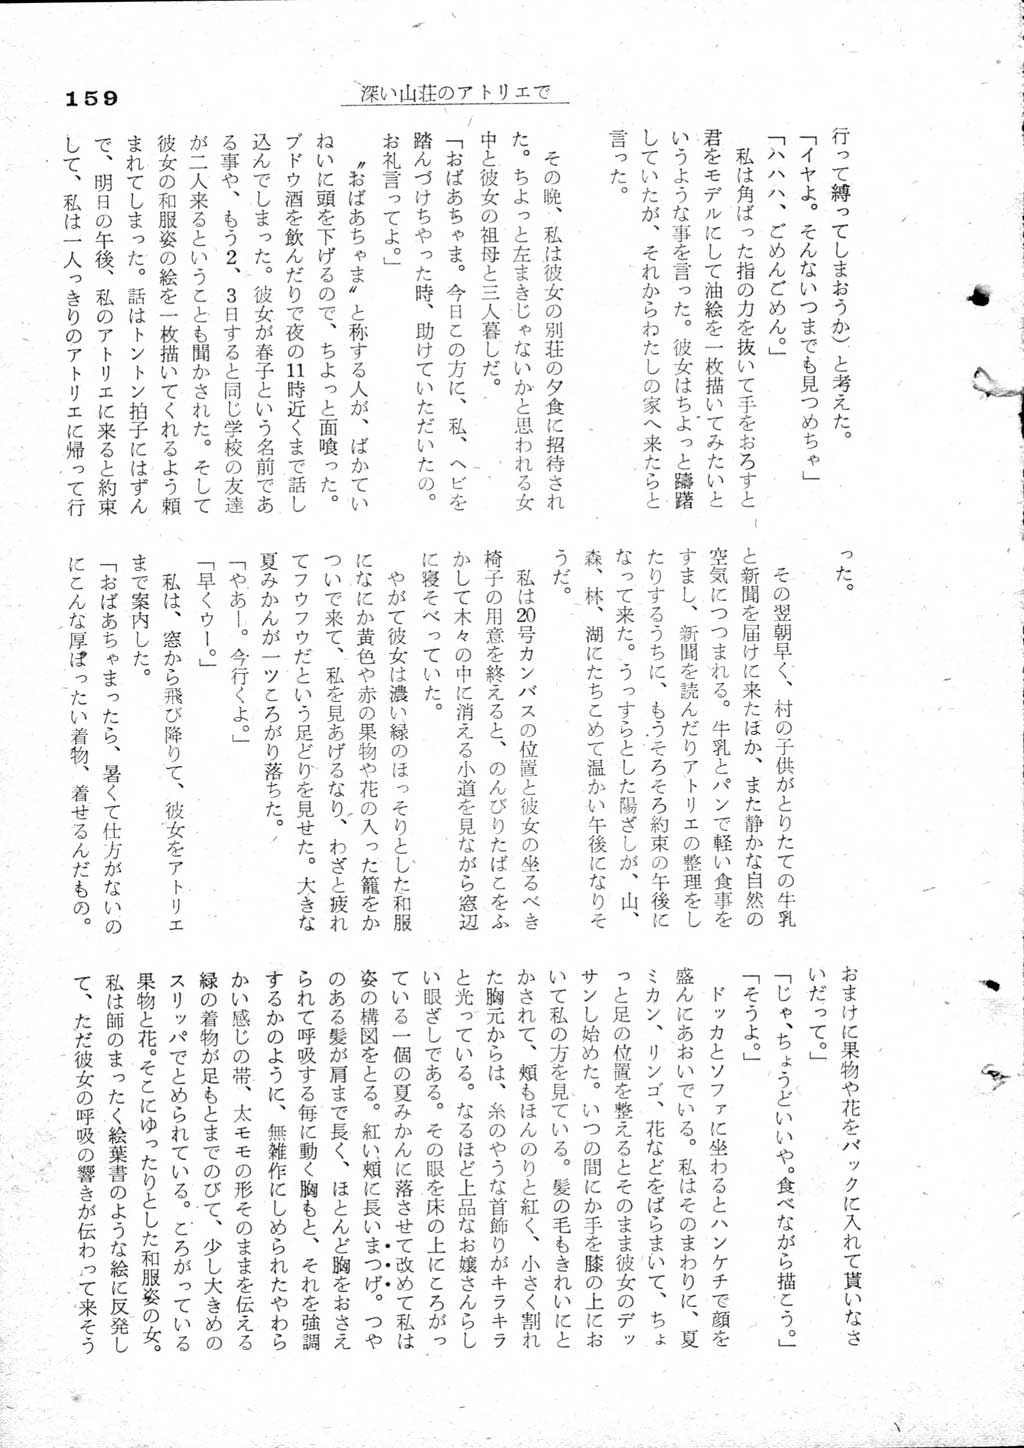 159
深い山荘のアトリエで
行って縛ってしまおうか)と考えた。
「イヤよ。そんないつまでも見つめちゃ」
「ハハハ、ごめんごめん。」
私は角ばった指の力を抜いて手をおろすと
君をモデルにして油絵を一枚描いてみたいと
いうような事を言った。彼女はちよっと躊躇
していたが、それからわたしの家へ来たらと
言った。
その晩、私は彼女の別荘の夕食に招待され
た。ちよっと左まきじゃないかと思われる女
中と彼女の祖母と三人暮しだ。
「おばあちゃま。今日この方に、私、ヘビを
踏んづけちやった時、助けていただいたの。
お礼言ってよ。」
〝おばあちゃま〟と称する人が、ばかてい
ねいに頭を下げるので、ちよっと面喰った。
ブドウ酒を飲んだりで夜の11時近くまで話し
込んでしまった。彼女が春子という名前であ
る事や、もう2、3日すると同じ学校の友達
が二人来るということも聞かされた。そして
彼女の和服姿の絵を一枚描いてくれるよう頼
まれてしまった。話はトントン拍子にはずん
で、明日の午後、私のアトリエに来ると約束
して、私は一人っきりのアトリエに帰って行
った。
その翌朝早く、村の子供がとりたての牛乳
と新聞を届けに来たほか、また静かな自然の
空気につつまれる。牛乳とパンで軽い食事を
すまし、新聞を読んだりアトリエの整理をし
たりするうちに、もうそろそろ約束の午後に
なって来た。うっすらとした陽ざしが、山、
森、林、湖にたちこめて温かい午後になりそ
うだ。
私は20号カンバスの位置と彼女の坐るべき
椅子の用意を終えると、のんびりたばこをふ
かして木々の中に消える小道を見ながら窓辺
に寝そべっていた。
やがて彼女は濃い緑のほっそりとした和服
になにか黄色や赤の果物や花の入った籠をか
ついで来て、私を見あげるなり、わざと疲れ
てフウフウだという足どりを見せた。大きな
夏みかんが一ツころがり落ちた。
「やあー。今行くよ。」
「早くウー。」
私は、窓から飛び降りて、彼女をアトリエ
まで案内した。
「おばあちゃまったら、暑くて仕方がないの
にこんな厚ぼったい着物、着せるんだもの。
おまけに果物や花をバックに入れて貰いなさ
いだって。」
「じゃ、ちょうどいいや。食べながら描こう。」
「そうよ。」
ドッカとソファに坐わるとハンケチで顔を
盛んにあおいでいる。私はそのまわりに、夏
ミカン、リンゴ、花などをばらまいて、ちょ
っと足の位置を整えるとそのまま彼女のデッ
サンし始めた。いつの間にか手を膝の上にお
いて私の方を見ている。髪の毛もきれいにと
かされて、頬もほんのりと紅く、小さく割れ
た胸元からは、糸のやうな首飾りがキラキラ
と光っている。なるほど上品なお嬢さんらし
い眼ざしである。その眼を床の上にころがっ
ている一個の夏みかんに落させて改めて私は
姿の構図をとる。紅い頬に長いまつげ。つや
のある髪が肩まで長く、ほとんど胸をおさえ
られて呼吸する毎に動く胸もと、それを強調
するかのように、無雑作にしめられたやわら
かい感じの帯、太モモの形そのままを伝える
緑の着物が足もとまでのびて、少し大きめの
スリッパでとめられている。ころがっている
果物と花。そこにゆったりとした和服姿の女。
私は師のまったく絵葉書のような絵に反発し
て、ただ彼女の呼吸の響きが伝わって来そう